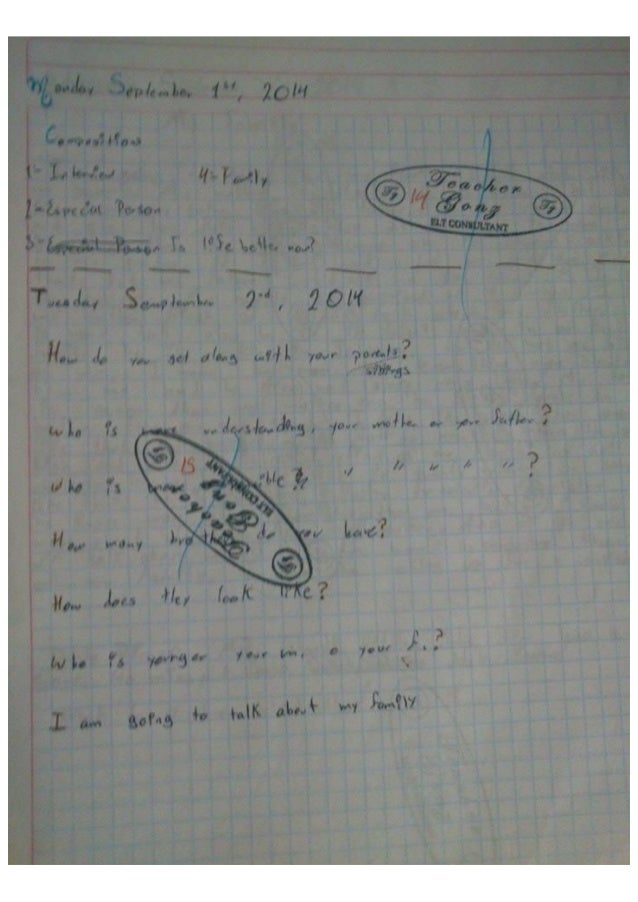 Monday September 1st, 2014
Composition
1- Interview 4= Family
2= Especial Person
3= Especial Person Is life better now?
Teacher
14 Gonz
ELT CONSULTANT
Tuesday Semptember 2nd, 2014
How do you get along with your parents?
siblings
Who is more understanding, your mother or your father?
15
Who is more ible " " " " " ?
Teacher
Gonz
ELT CONSULTANT
How many do you have?
How does they look like?
Who is younger your m. o your f.?
I am going to talk about my family